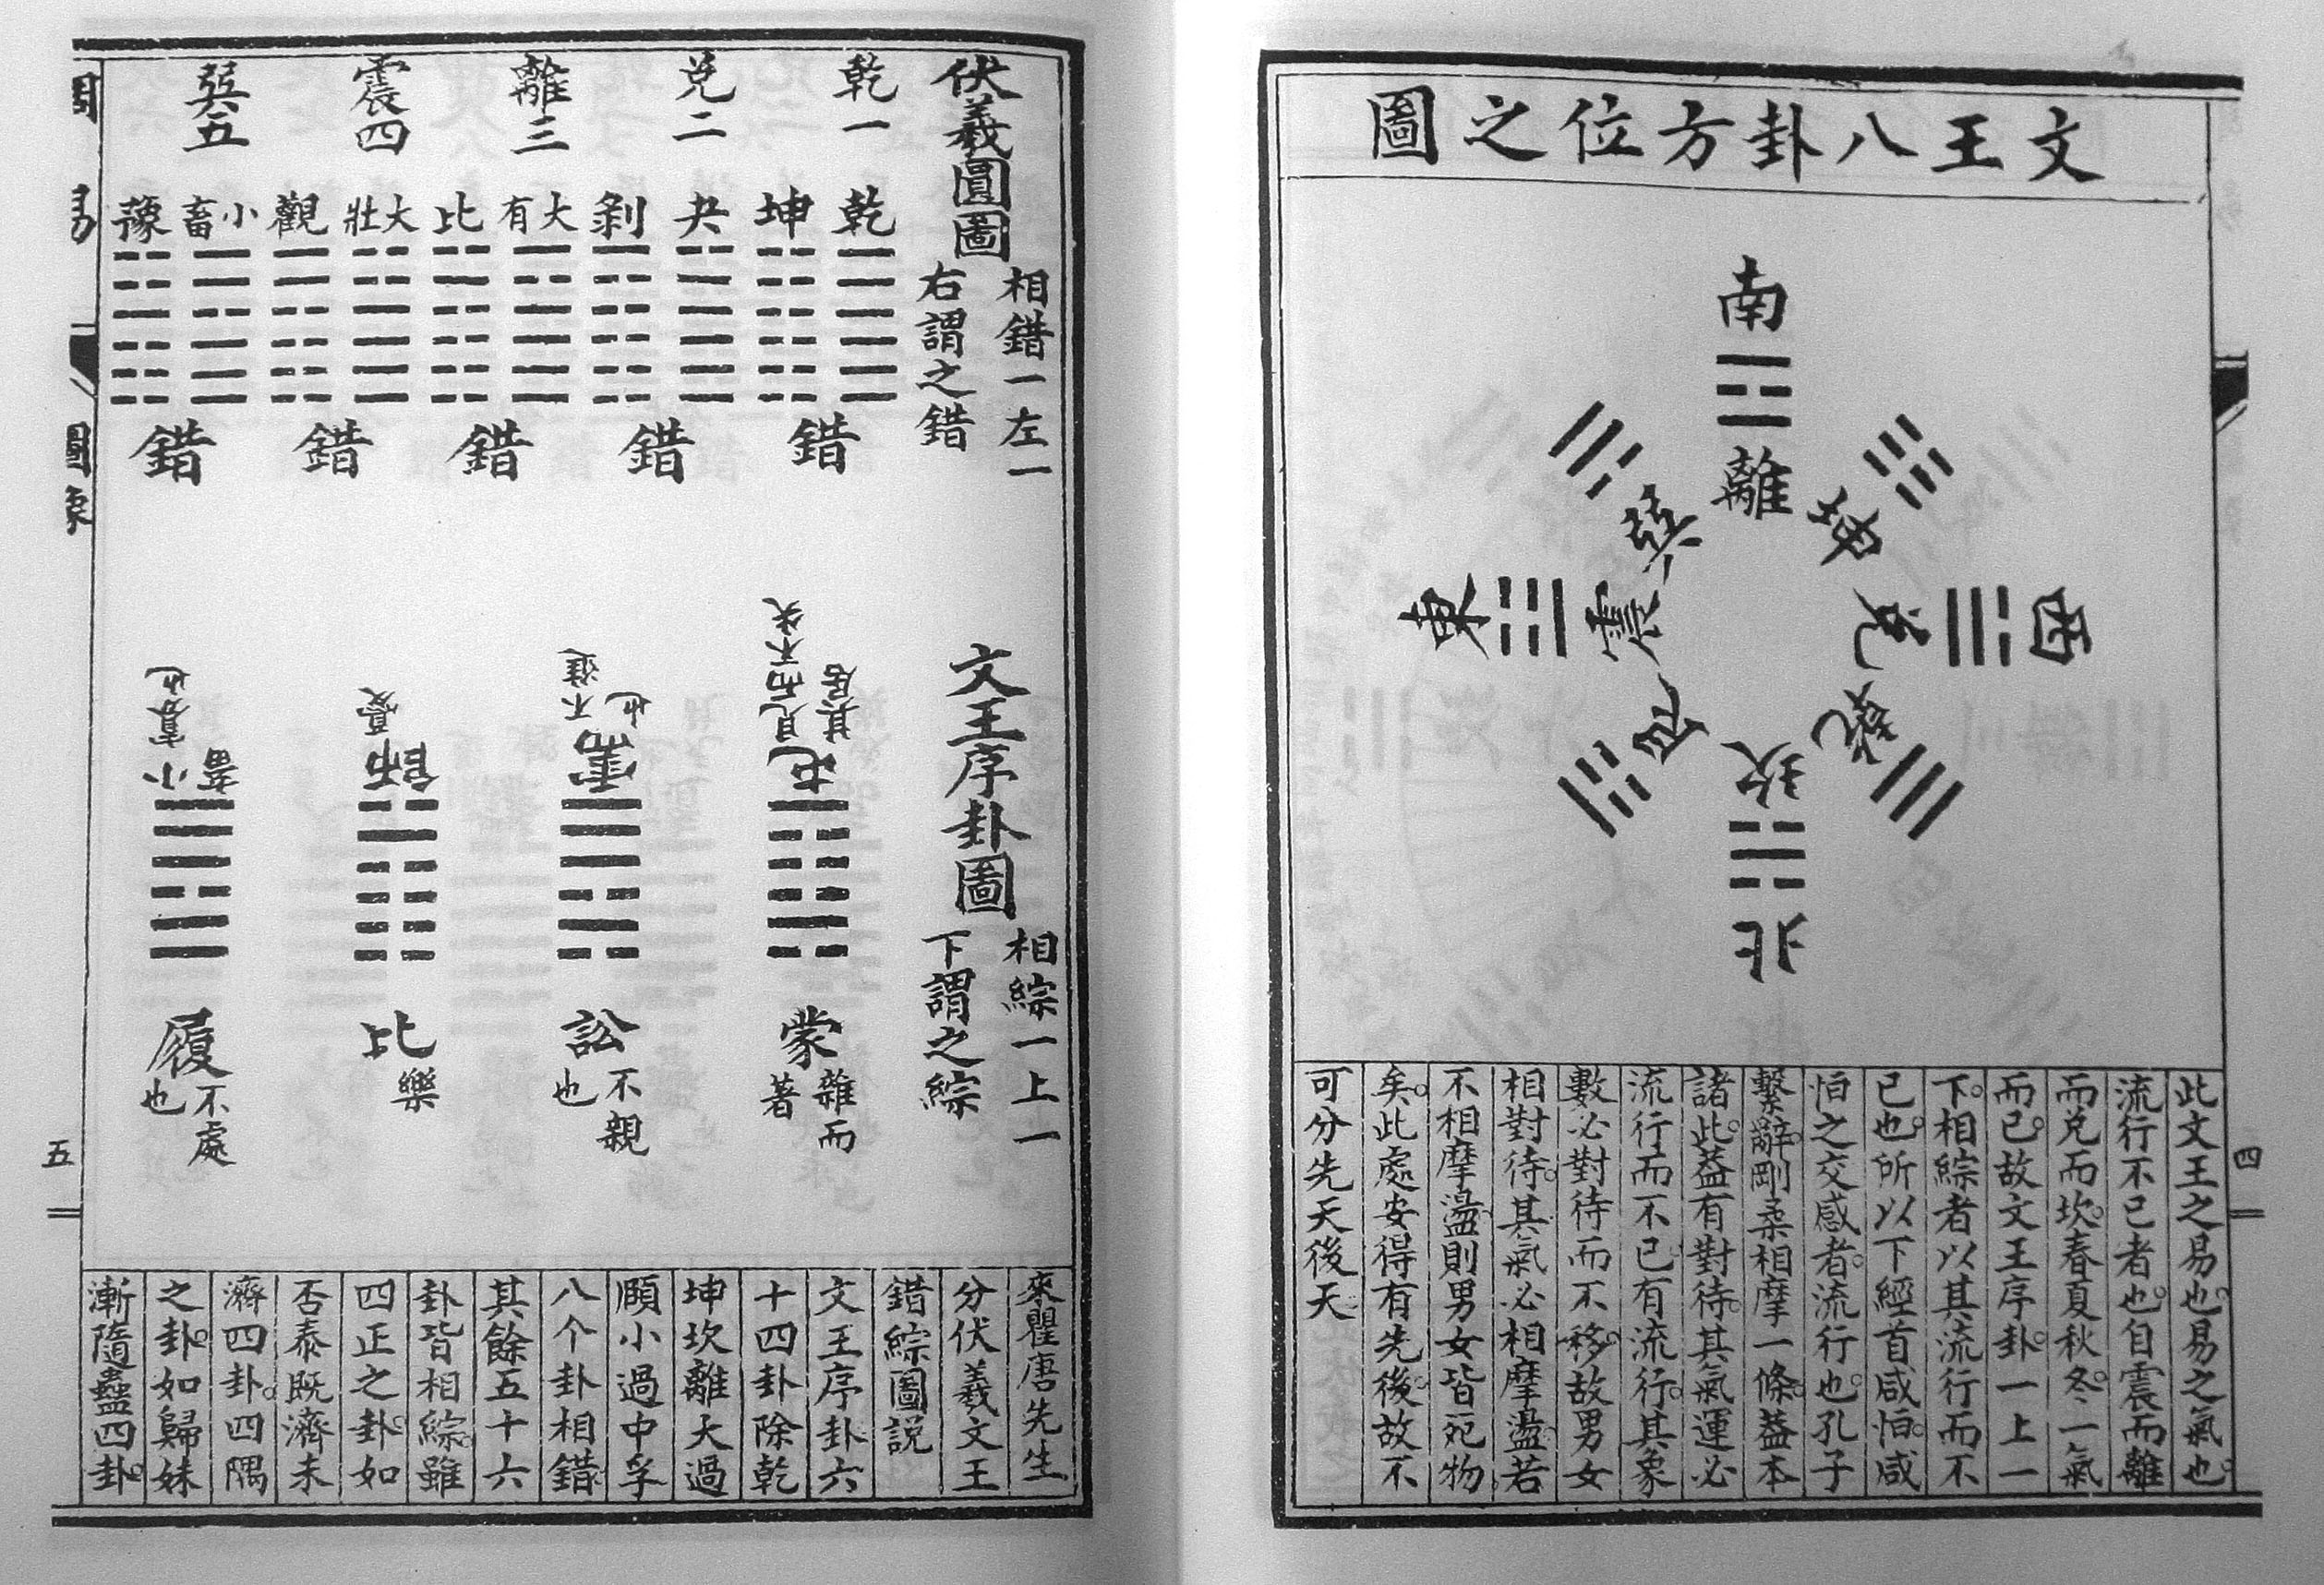 文王八卦方位之圖
南
離
坤
兌
西
乾
坎
北
艮
震
東
巽
此文王之易也易之氣也
流行不已者也自震而離
而兌而坎春夏秋冬一氣
而已故文王序卦一上一
下相綜者以其流行而不
已也所以下經首咸恒咸
恒之交感者流行也孔子
繫辭剛柔相摩一條蓋本
諸此蓋有對待其氣運必
流行而不已有流行其象
數必對待而不移故男女
相對待其氣必相摩盪若
不相摩盪則男女皆死物
矣此處安得有先後故不
可分先天後天
四
伏羲圓圖
相錯一左一
右謂之錯
乾一
兌二
離三
震四
巽五
乾
坤
夬
剝
大有
比
大壯
觀
小畜
豫
錯
錯
錯
錯
錯
文王序卦圖
相綜一上一
下謂之綜
屯見而不失
其居
蒙雜而
著
需不進
也
訟不親
也
師憂
比樂
小畜寡也
履不處
也
來瞿唐先生
分伏羲文王
錯綜圖説
文王序卦六
十四卦除乾
坤坎離大過
頤小過中孚
八个卦相錯
其餘五十六
卦皆相綜雖
四正之卦如
否泰既濟未
濟四卦四隅
之卦如歸妹
漸隨蠱四卦
圖象
五